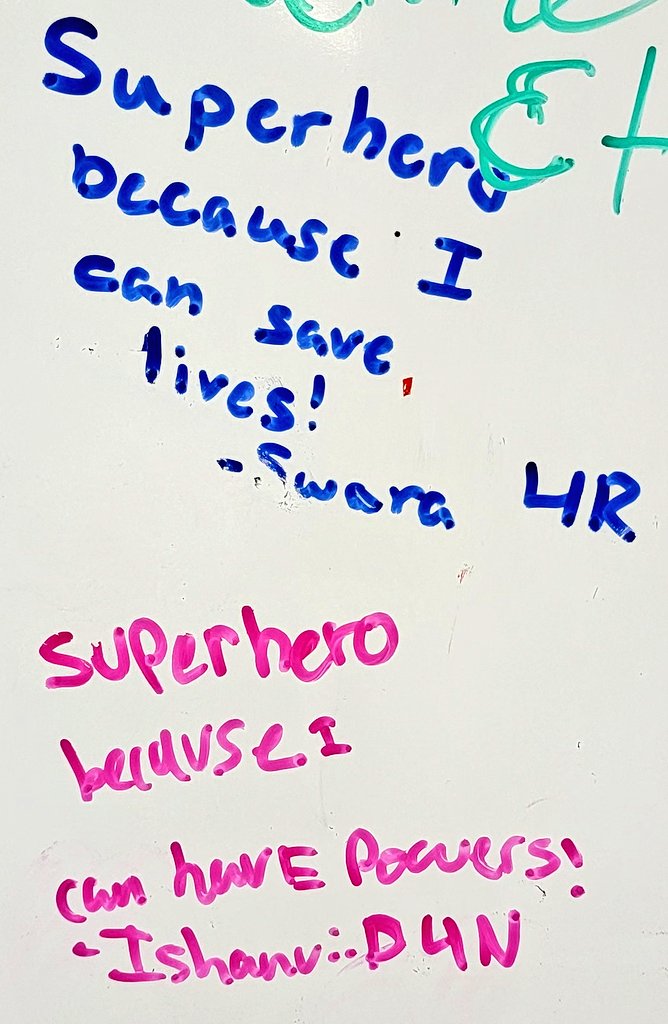 Superhero
because I
can save
lives!
-Swara 4R
Superhero
because I
can havE Powers!
-Ishanv::D 4N